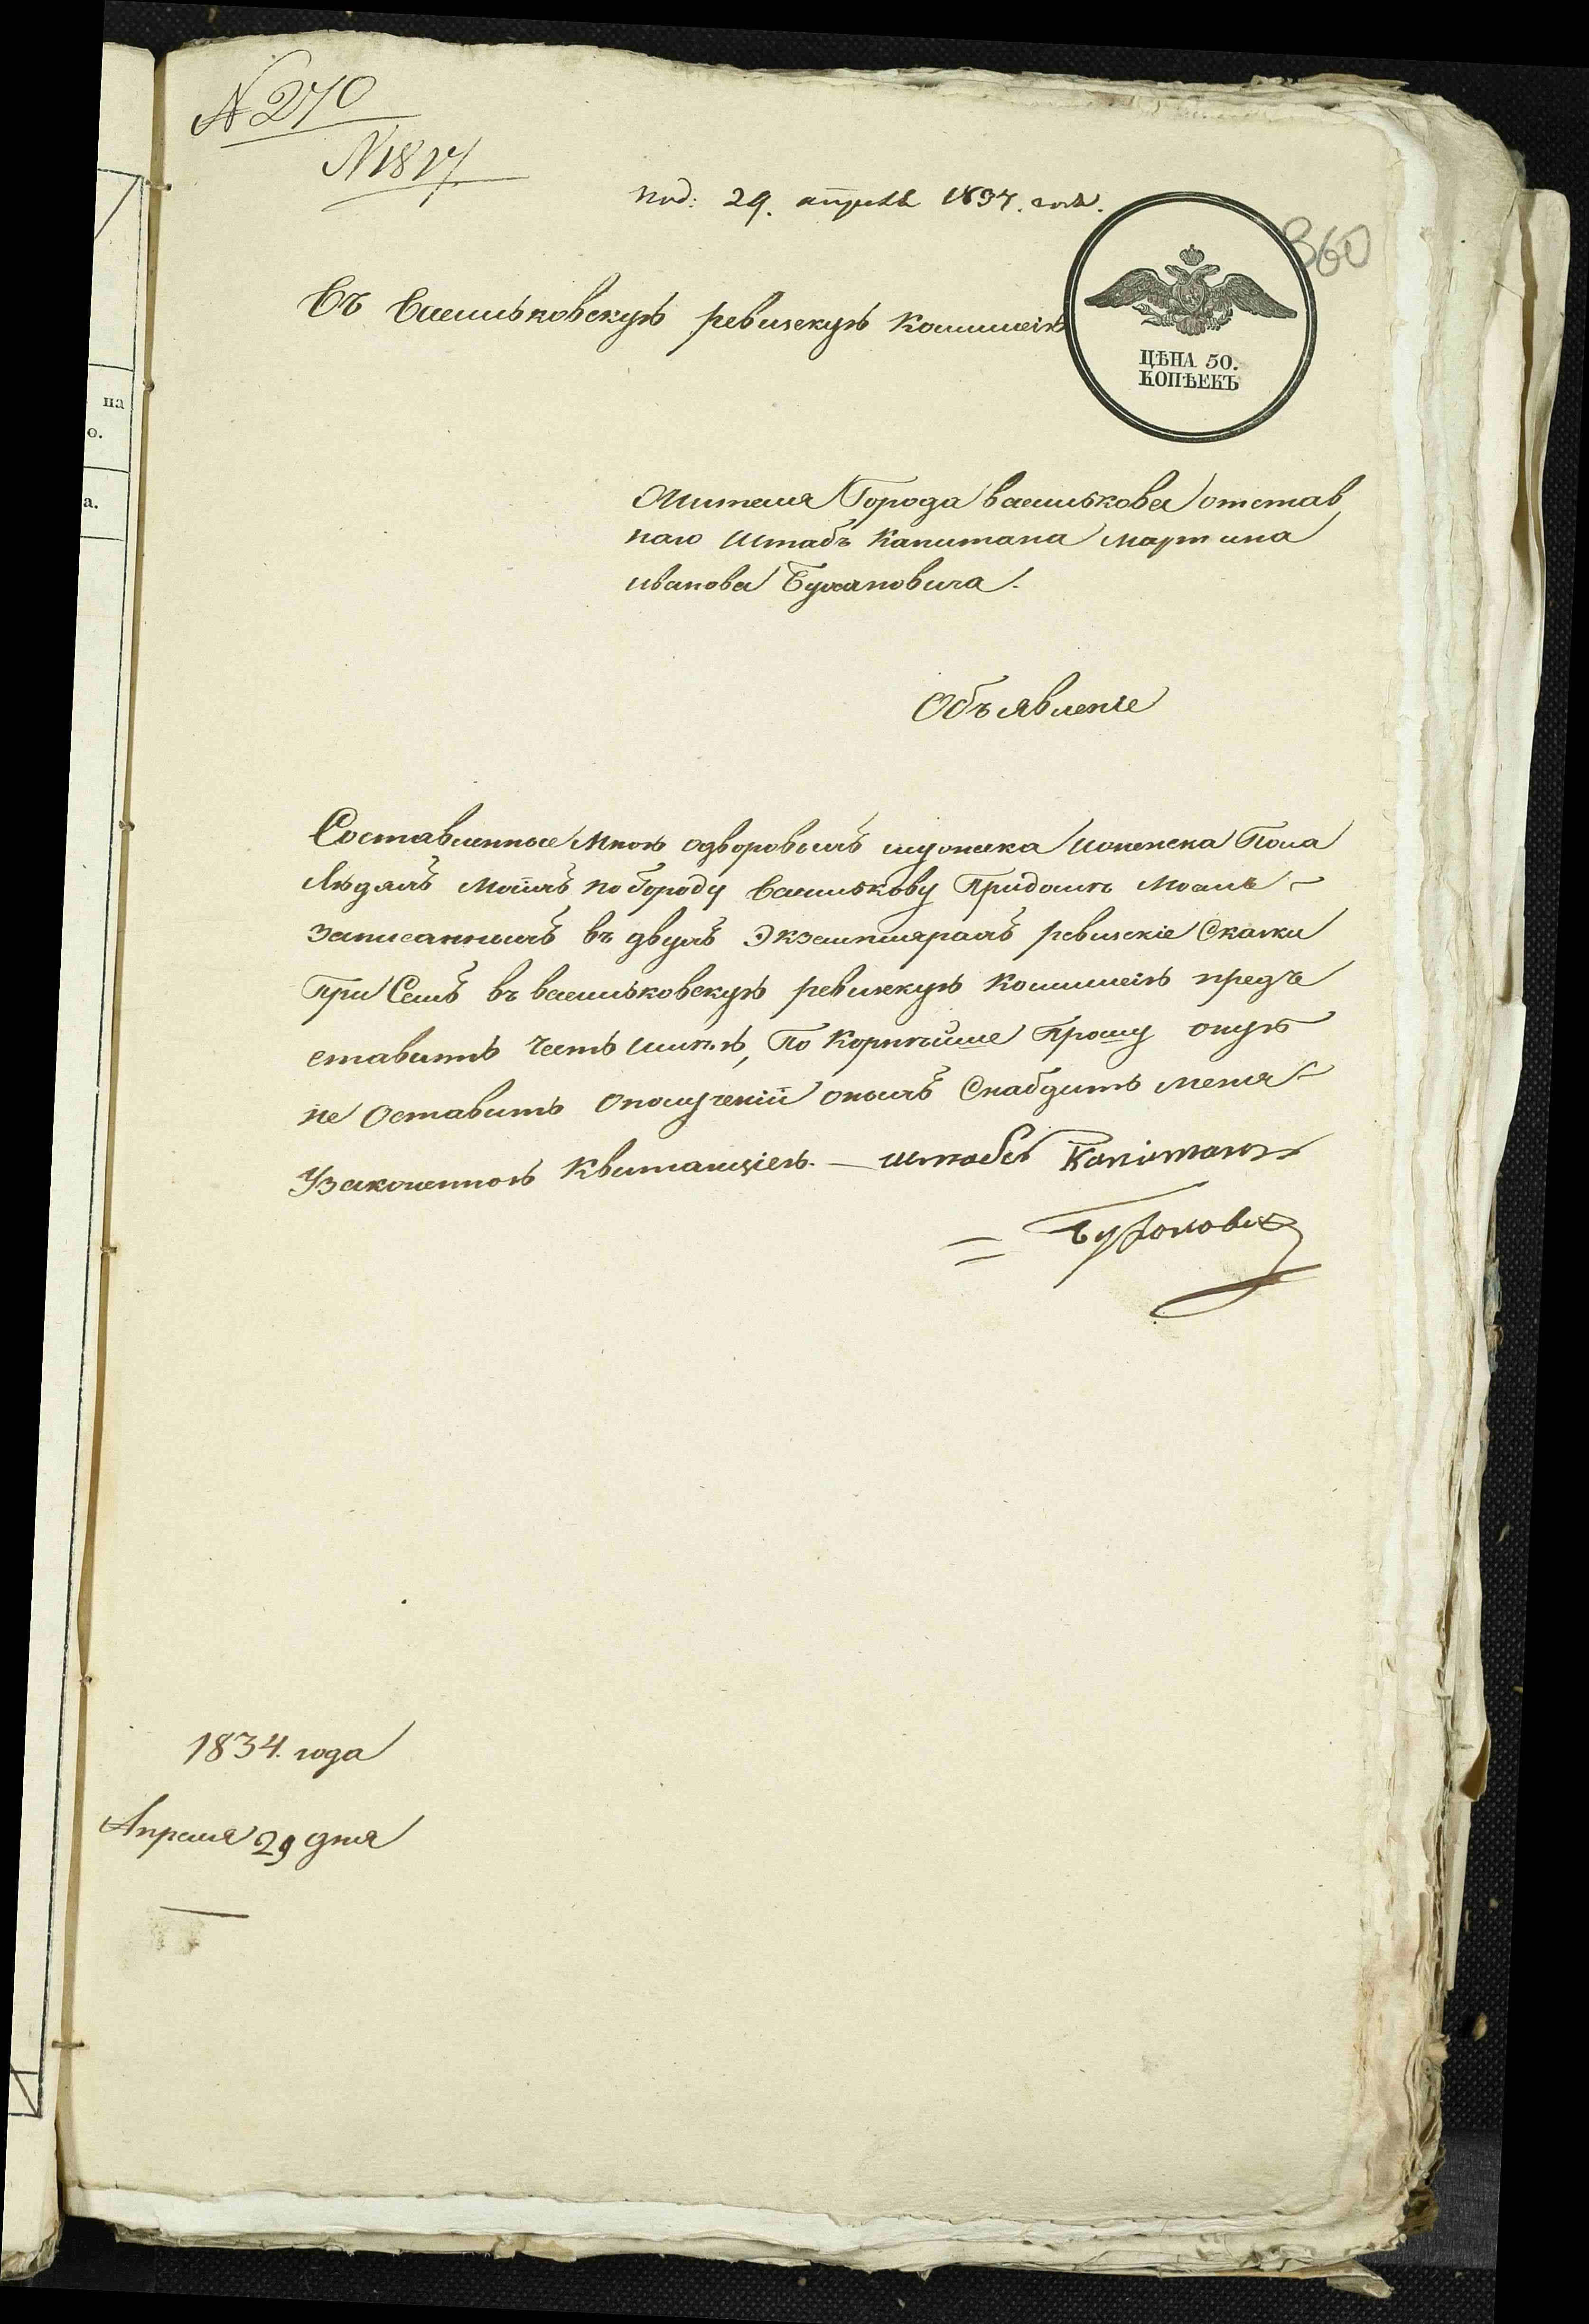 № 270
№ 1817
под: 29. апреля 1834. года.
360
Въ Васильковскую ревизскую Коммисію
ЦѢНА 50.
КОПѢЕКЪ
Жителя Города Василькова отстав
наго Штабъ Капитана Мартина
Иванова Бухановича.
Объявленіе
Составленные мною одворовыхъ мужеска иженска Пола
людяхъ моихъ погороду Василькову Придомѣ моемъ
записанныхъ въ двухъ Экземплярахъ ревизскіе Скаски
При Семъ въ Васильковскую ревизкую Коммисію предъ
ставить честь имѣю, По Коримъ Прошу оную
не Оставить ополученіи оныхъ Снабдить меня
Узаконенною Квитанціею. — Штабсъ Капитанъ
Буханович
1834. года
Апреля 29 дня
на
о.
а.